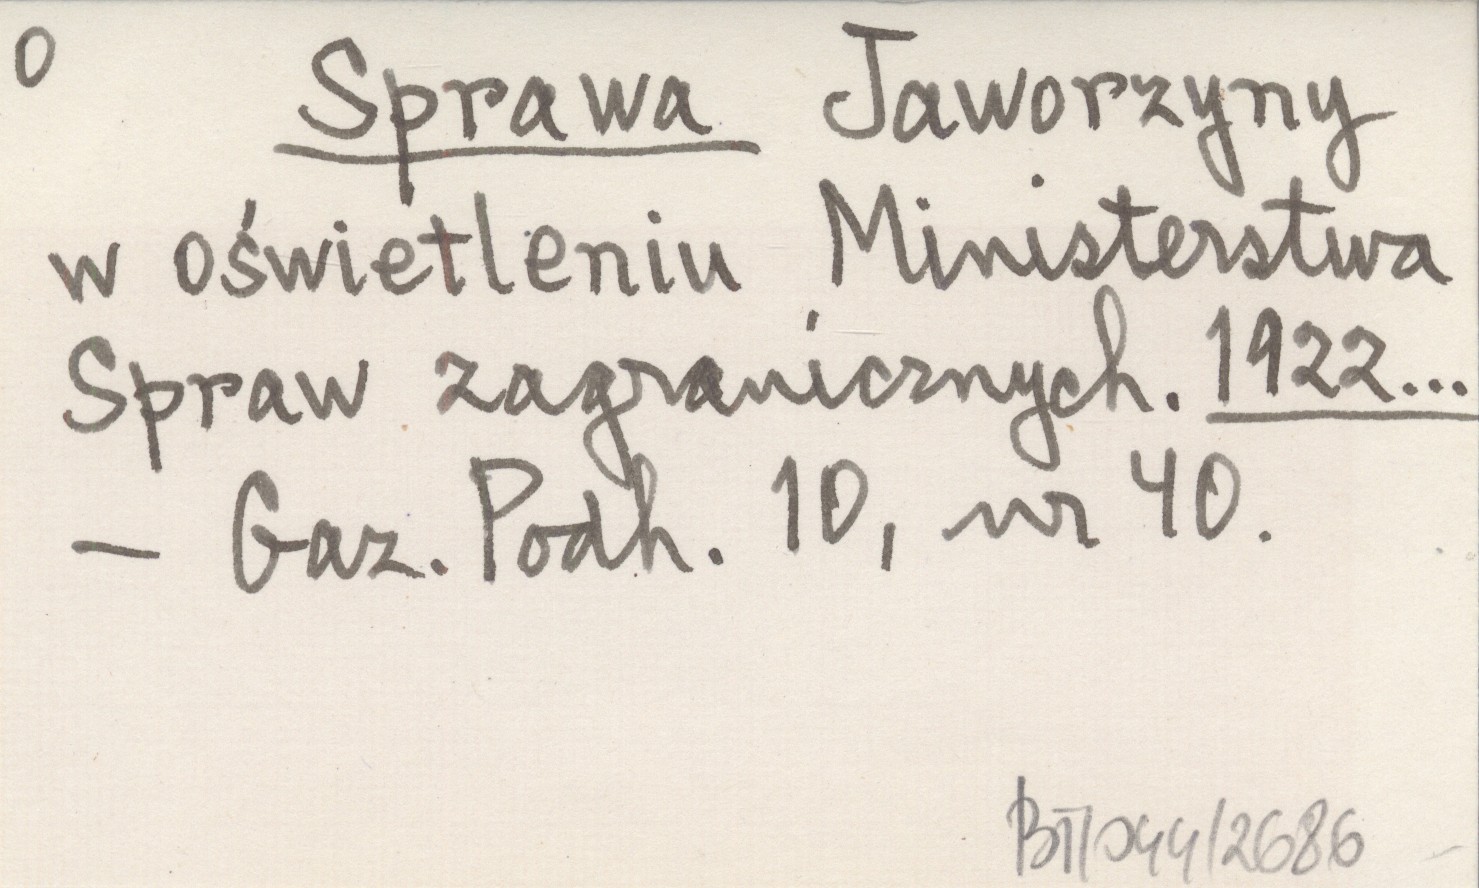 0
Sprawa Jaworzyny
w oświetleniu Ministerstwa
Spraw zagranicznych. 1922...
— Gaz. Podh. 10, nr 40.
BT/044/2686